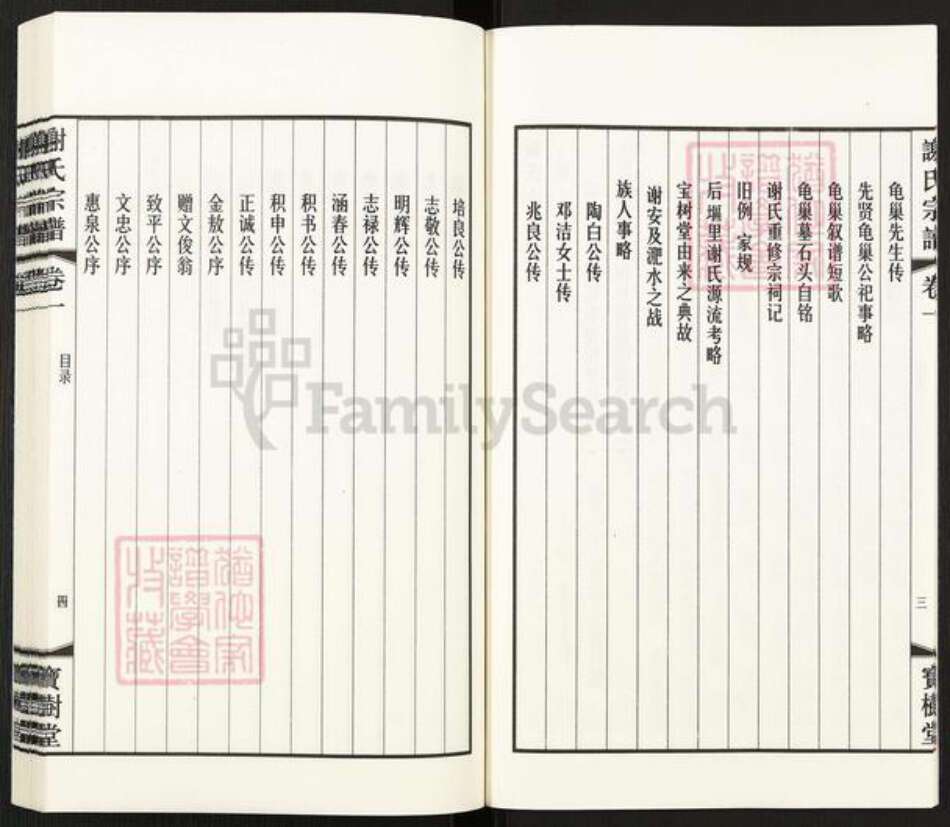 謝氏宗譜 卷一
三
寶樹堂
龟巢先生传
先贤龟巢公祀事略
龟巢叙谱短歌
龟巢墓石头自铭
谢氏重修宗祠记
旧例 家规
后堰里谢氏源流考略
宝树堂由来之典故
谢安及淝水之战
族人事略
陶白公传
邓洁女士传
兆良公传
培良公传
志敬公传
明辉公传
志禄公传
涵春公传
积书公传
积申公传
正诚公传
金敖公序
赠文俊翁
致平公序
文忠公序
惠泉公序
謝氏宗譜 卷一
目录
四
寶樹堂
猶他家
譜學會
特藏
FamilySearch